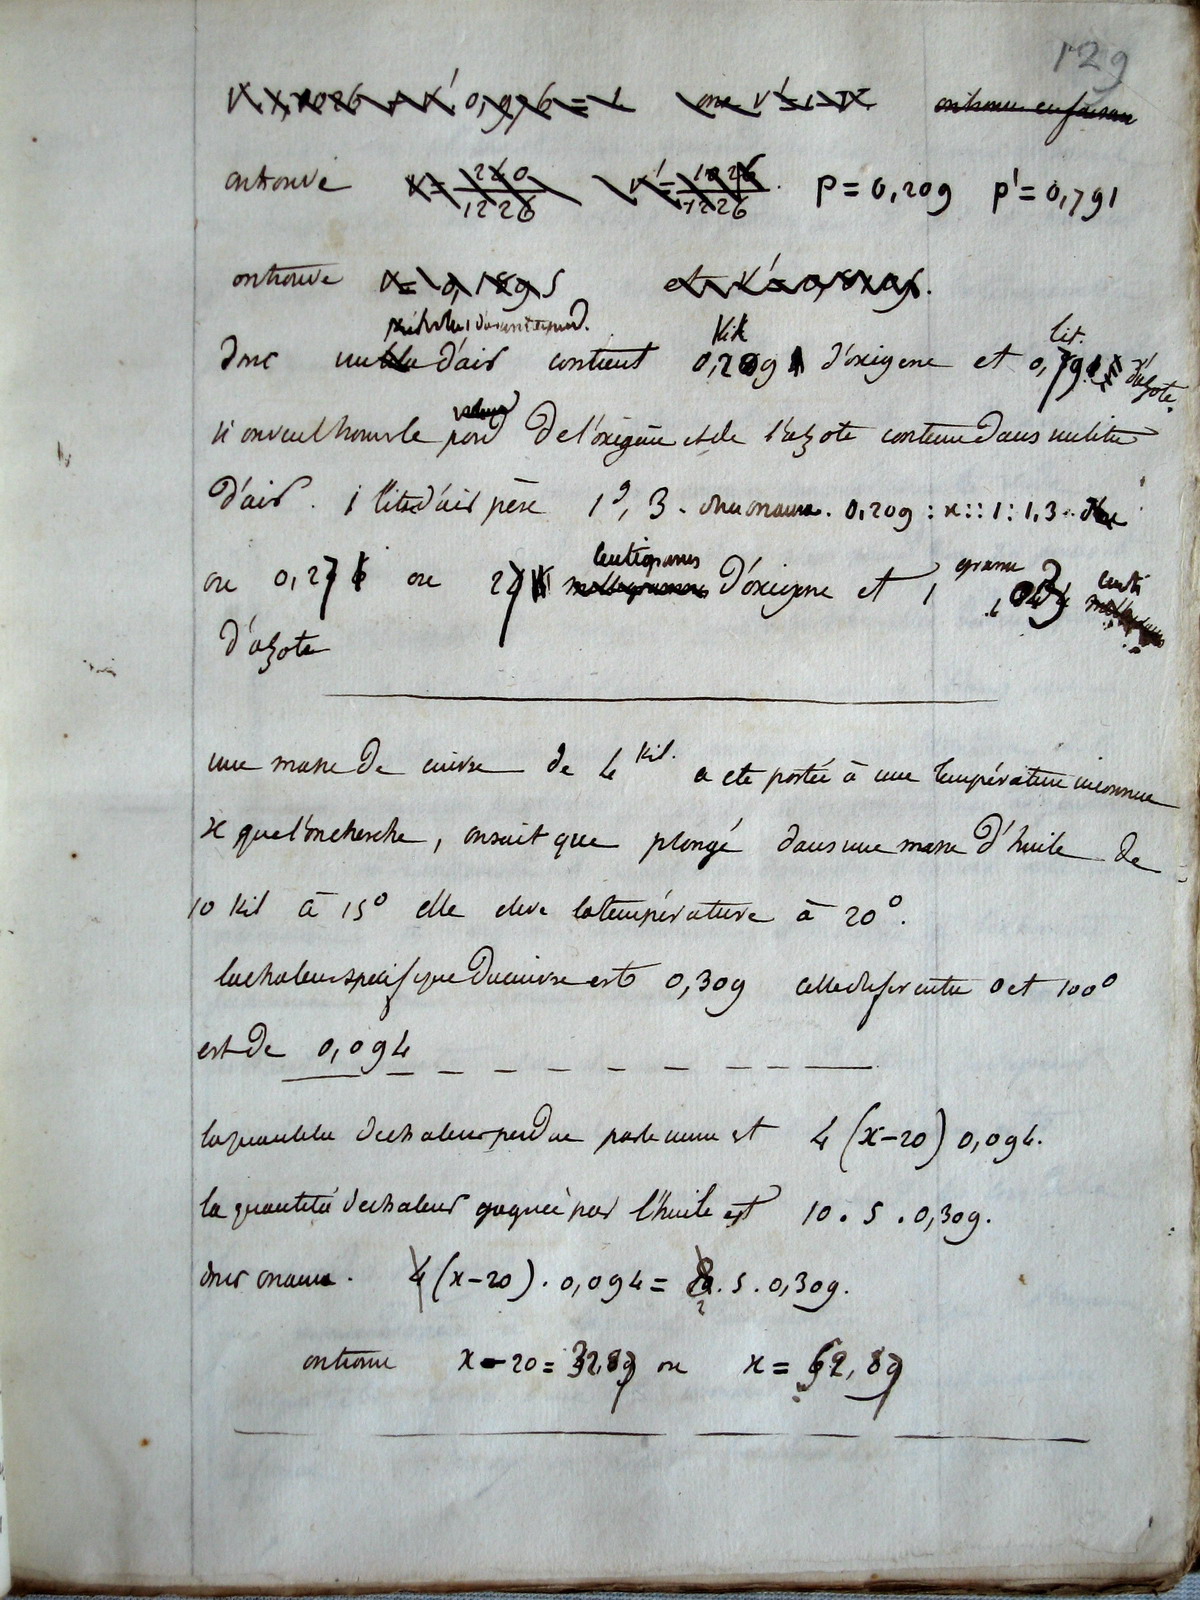 129
on trouve p = 0,209 p' = 0,791
on trouve
donc d'air contient 0,209 d'oxigene et 0,791 d'azote
si on veut trouver le poid de l'oxigène et de l'azote contenu dans un litre
d'air. 1 litre d'air pèse 1g,3. donc on aura. 0,209 : x :: 1 : 1,3.
ou 0,27 ou 27 centigrames d'oxigene et 1 grame 03 centi
d'azote
une masse de cuivre de 4 kil. a été portée à une température inconnue
x que l'on cherche, on sait que plongé dans une masse d'huile de
10 kil à 15° elle eleve la température à 20°.
la chaleur specifique du cuivre est 0,309 celle du fer entre 0 et 100°
est de 0,094
la quantité de chaleur perdue par le cuivre est 4 (x-20) 0,094.
la quantité de chaleur gagnée par l'huile est 10. 5. 0,309.
donc on aura. 4 (x-20). 0,094 = . 5. 0,309.
on trouve x-20 = 32,87 ou x = 52,87